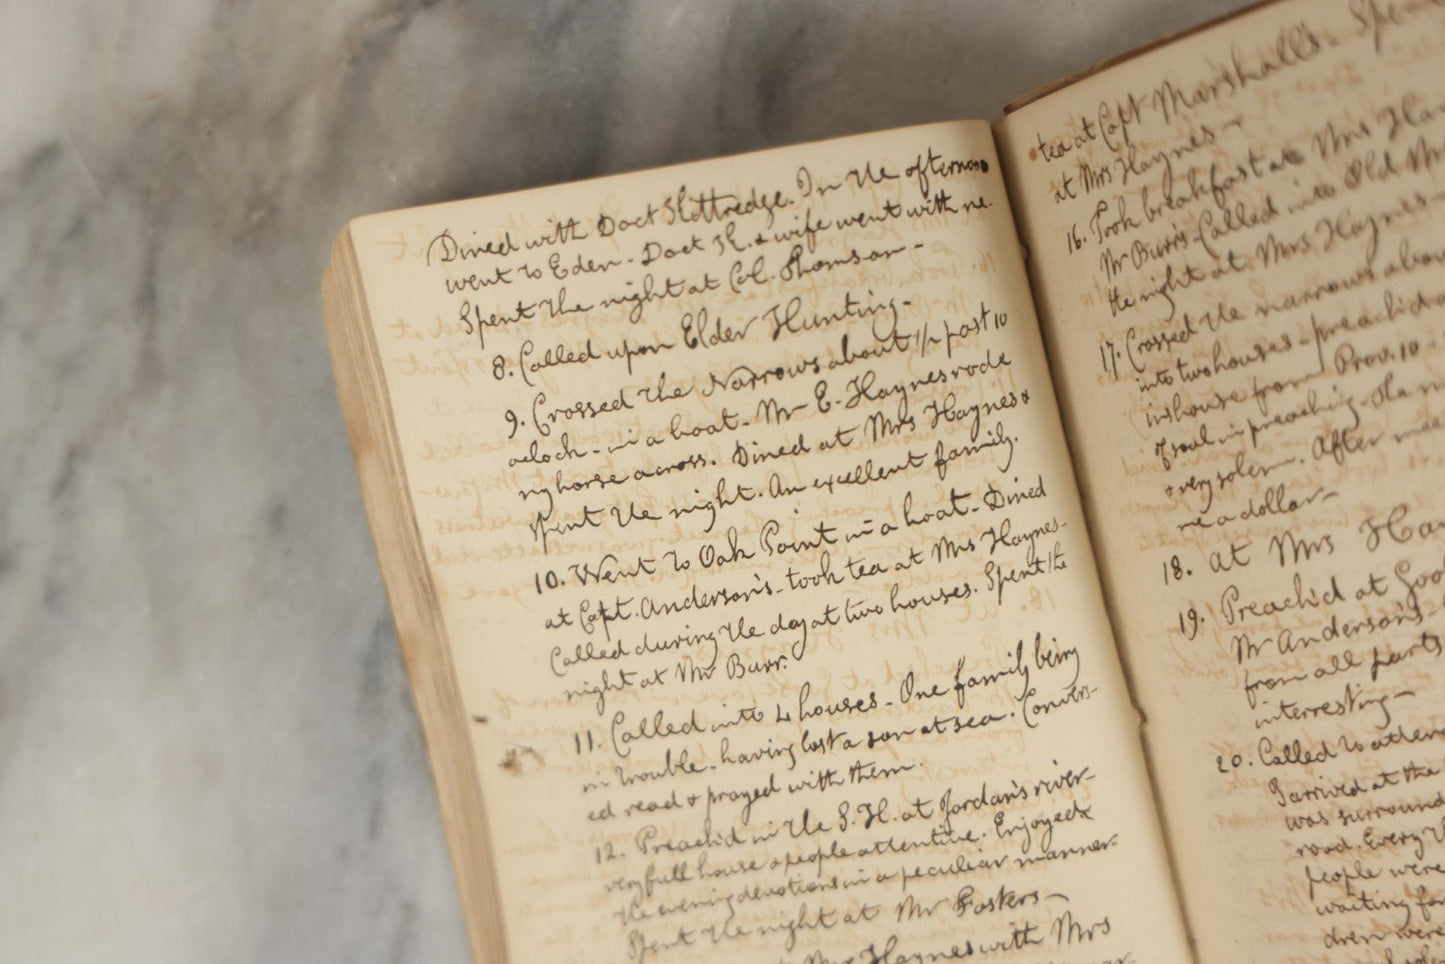 Dined with Doct Kittredge. In the afternoon
went to Eden - Doct K. & wife went with me.
Spent the night at Col. Thomson -
8. Called upon Elder Hunting -
9. Crossed the Narrows about 1/2 past 10
oclock - in a boat - Mr E. Haynes rode
my horse across. Dined at Mrs Haynes &
spent the night. An excellent family.
10. Went to Oak Point in a boat - Dined
at Capt. Anderson's - took tea at Mrs Haynes -
Called during the day at two houses. Spent the
night at Mr Burr.
11. Called into 4 houses - One family being
in trouble - having lost a son at sea. Convers-
ed read & prayed with them.
12. Preach'd in the S. H. at Jordan's river -
very full house & people attentive. Enjoyed
the evening devotions in a peculiar manner.
Spent the night at Mr Fosters -
Haynes with Mrs
tea at Capt Marshall's. Spent
at Mrs Haynes -
16. Took breakfast at Mrs
Mr Burr's - Called into Old Mr
the night at Mrs Haynes -
17. Crossed the narrows about
into two houses - preach'd
in house from Prov. 10 -
of soul in preaching - The
& very solemn. After
me a dollar -
18. at Mrs
19. Preach'd at
Mr Anderson's
from all parts
interresting -
20. Called to
I arrived at the
was
road. Every
people were
waiting for
dren were